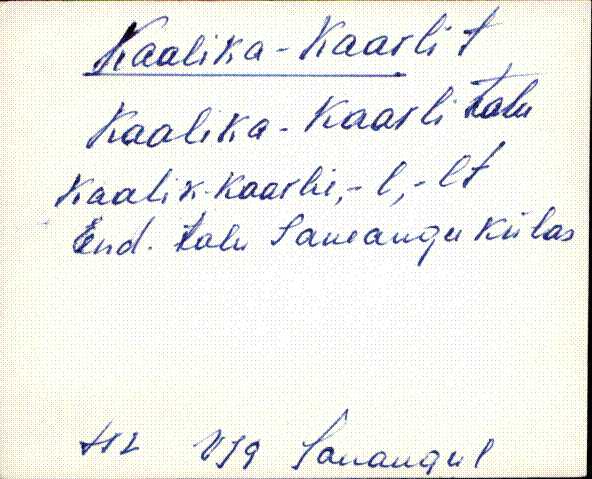 Kaalika-Kaarli t
Kaalika-Kaarli talu
Kaalik-Kaarlie, -l, -lt
End. talu Sameangu külas
VJg